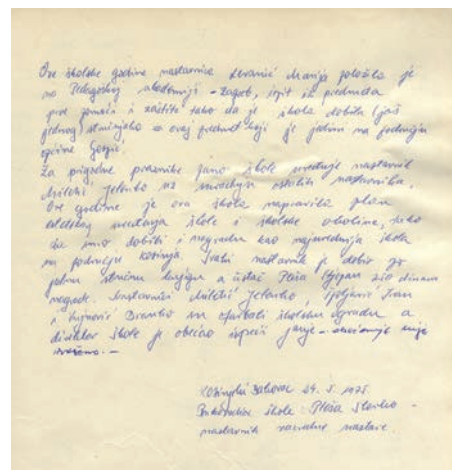 Ove školske godine nastavnica Levanić Marija položila je
na Pedagoškoj akademiji - Zagreb, ispit iz predmeta
prve pomoći i zaštite tako da je škola dobila još
jednog stručnjaka za ovaj predmet koji je jedini na području
općine Gospić.
Za prigodne praznike pano škole uređuje nastavnik
Miletić Jelenko uz suradnju ostalih nastavnika.
Ove godine je ova škola napravila plan
uređenja škole i školske okoline, tako
da smo dobili i nagradu kao najurednija škola
na području Kosinja. Svaki nastavnik je dobio po
jednu stručnu knjigu a Pleša Stjepan 250 dinara
nagrade. Nastavnici Miletić Jelenko, Špoljarić Ivan
i Hujnović Branko su ofarbali školsku ogradu a
direktor škole je obećao ispeći janje - obećanje nije
Kosinjski Bakovac 24. 5. 1975.
škole Pleša Slavko -
nastavnik razredne nastave.